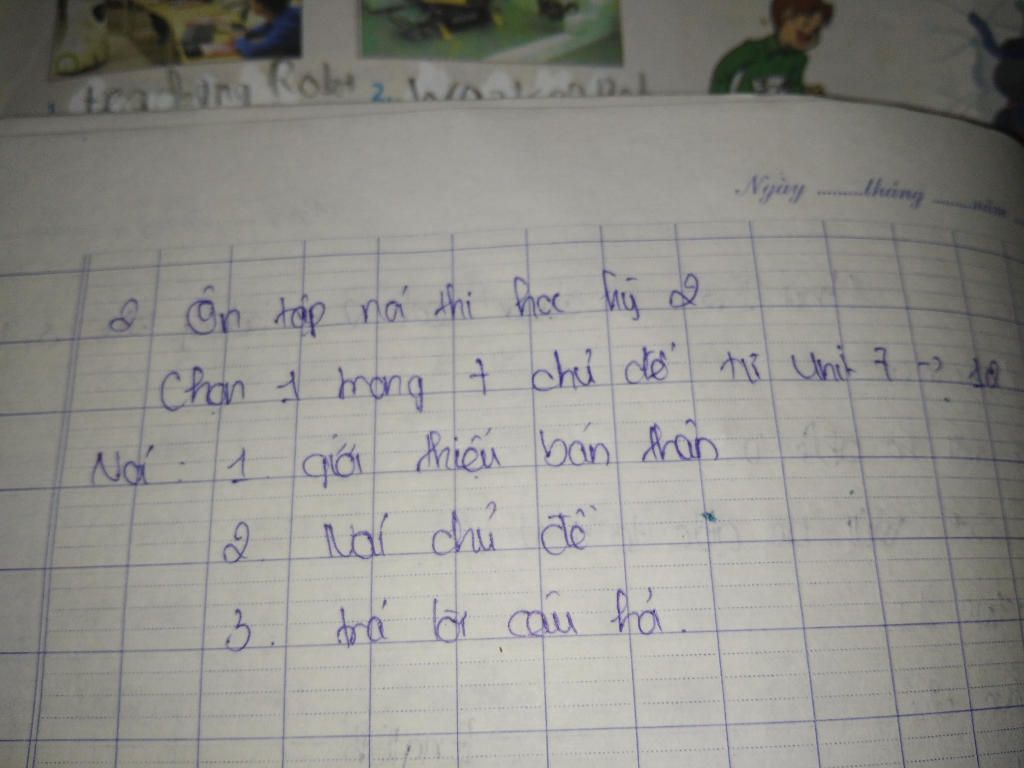 1. teaching Robot 2. Worker Robot
Ngày ........tháng ........năm
2 Ôn tập nói thi học kỳ 2
Chọn 1 trong 7 chủ đề từ Unit 7 -> 10
Nói : 1 giới thiệu bản thân
2 Nói chủ đề
3. trả lời câu hỏi.